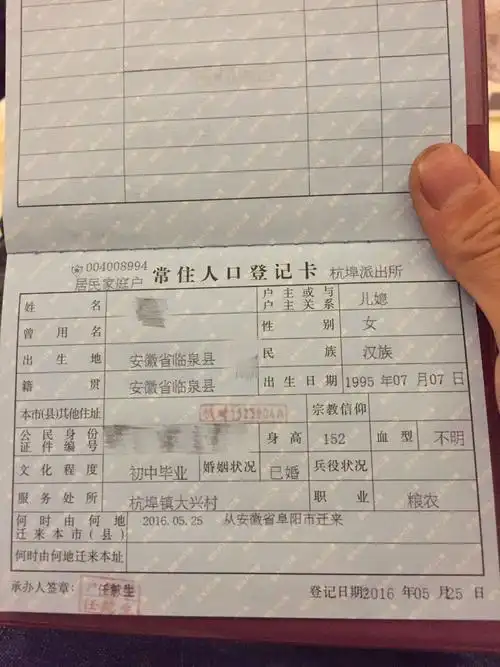 004008994
居民家庭户
常住人口登记卡 杭埠派出所
姓名 户主或与户主关系 儿媳
曾用名 性别 女
出生地 安徽省临泉县 民族 汉族
籍贯 安徽省临泉县 出生日期 1995年07月07日
本市(县)其他住址 宗教信仰
公民身份证件编号 身高 152 血型 不明
文化程度 初中毕业 婚姻状况 已婚 兵役状况
服务处所 杭埠镇大兴村 职业 粮农
何时由何地迁来本市(县) 2016.05.25 从安徽省阜阳市迁来
何时由何地迁来本址
承办人签章: 登记日期2016年05月25日